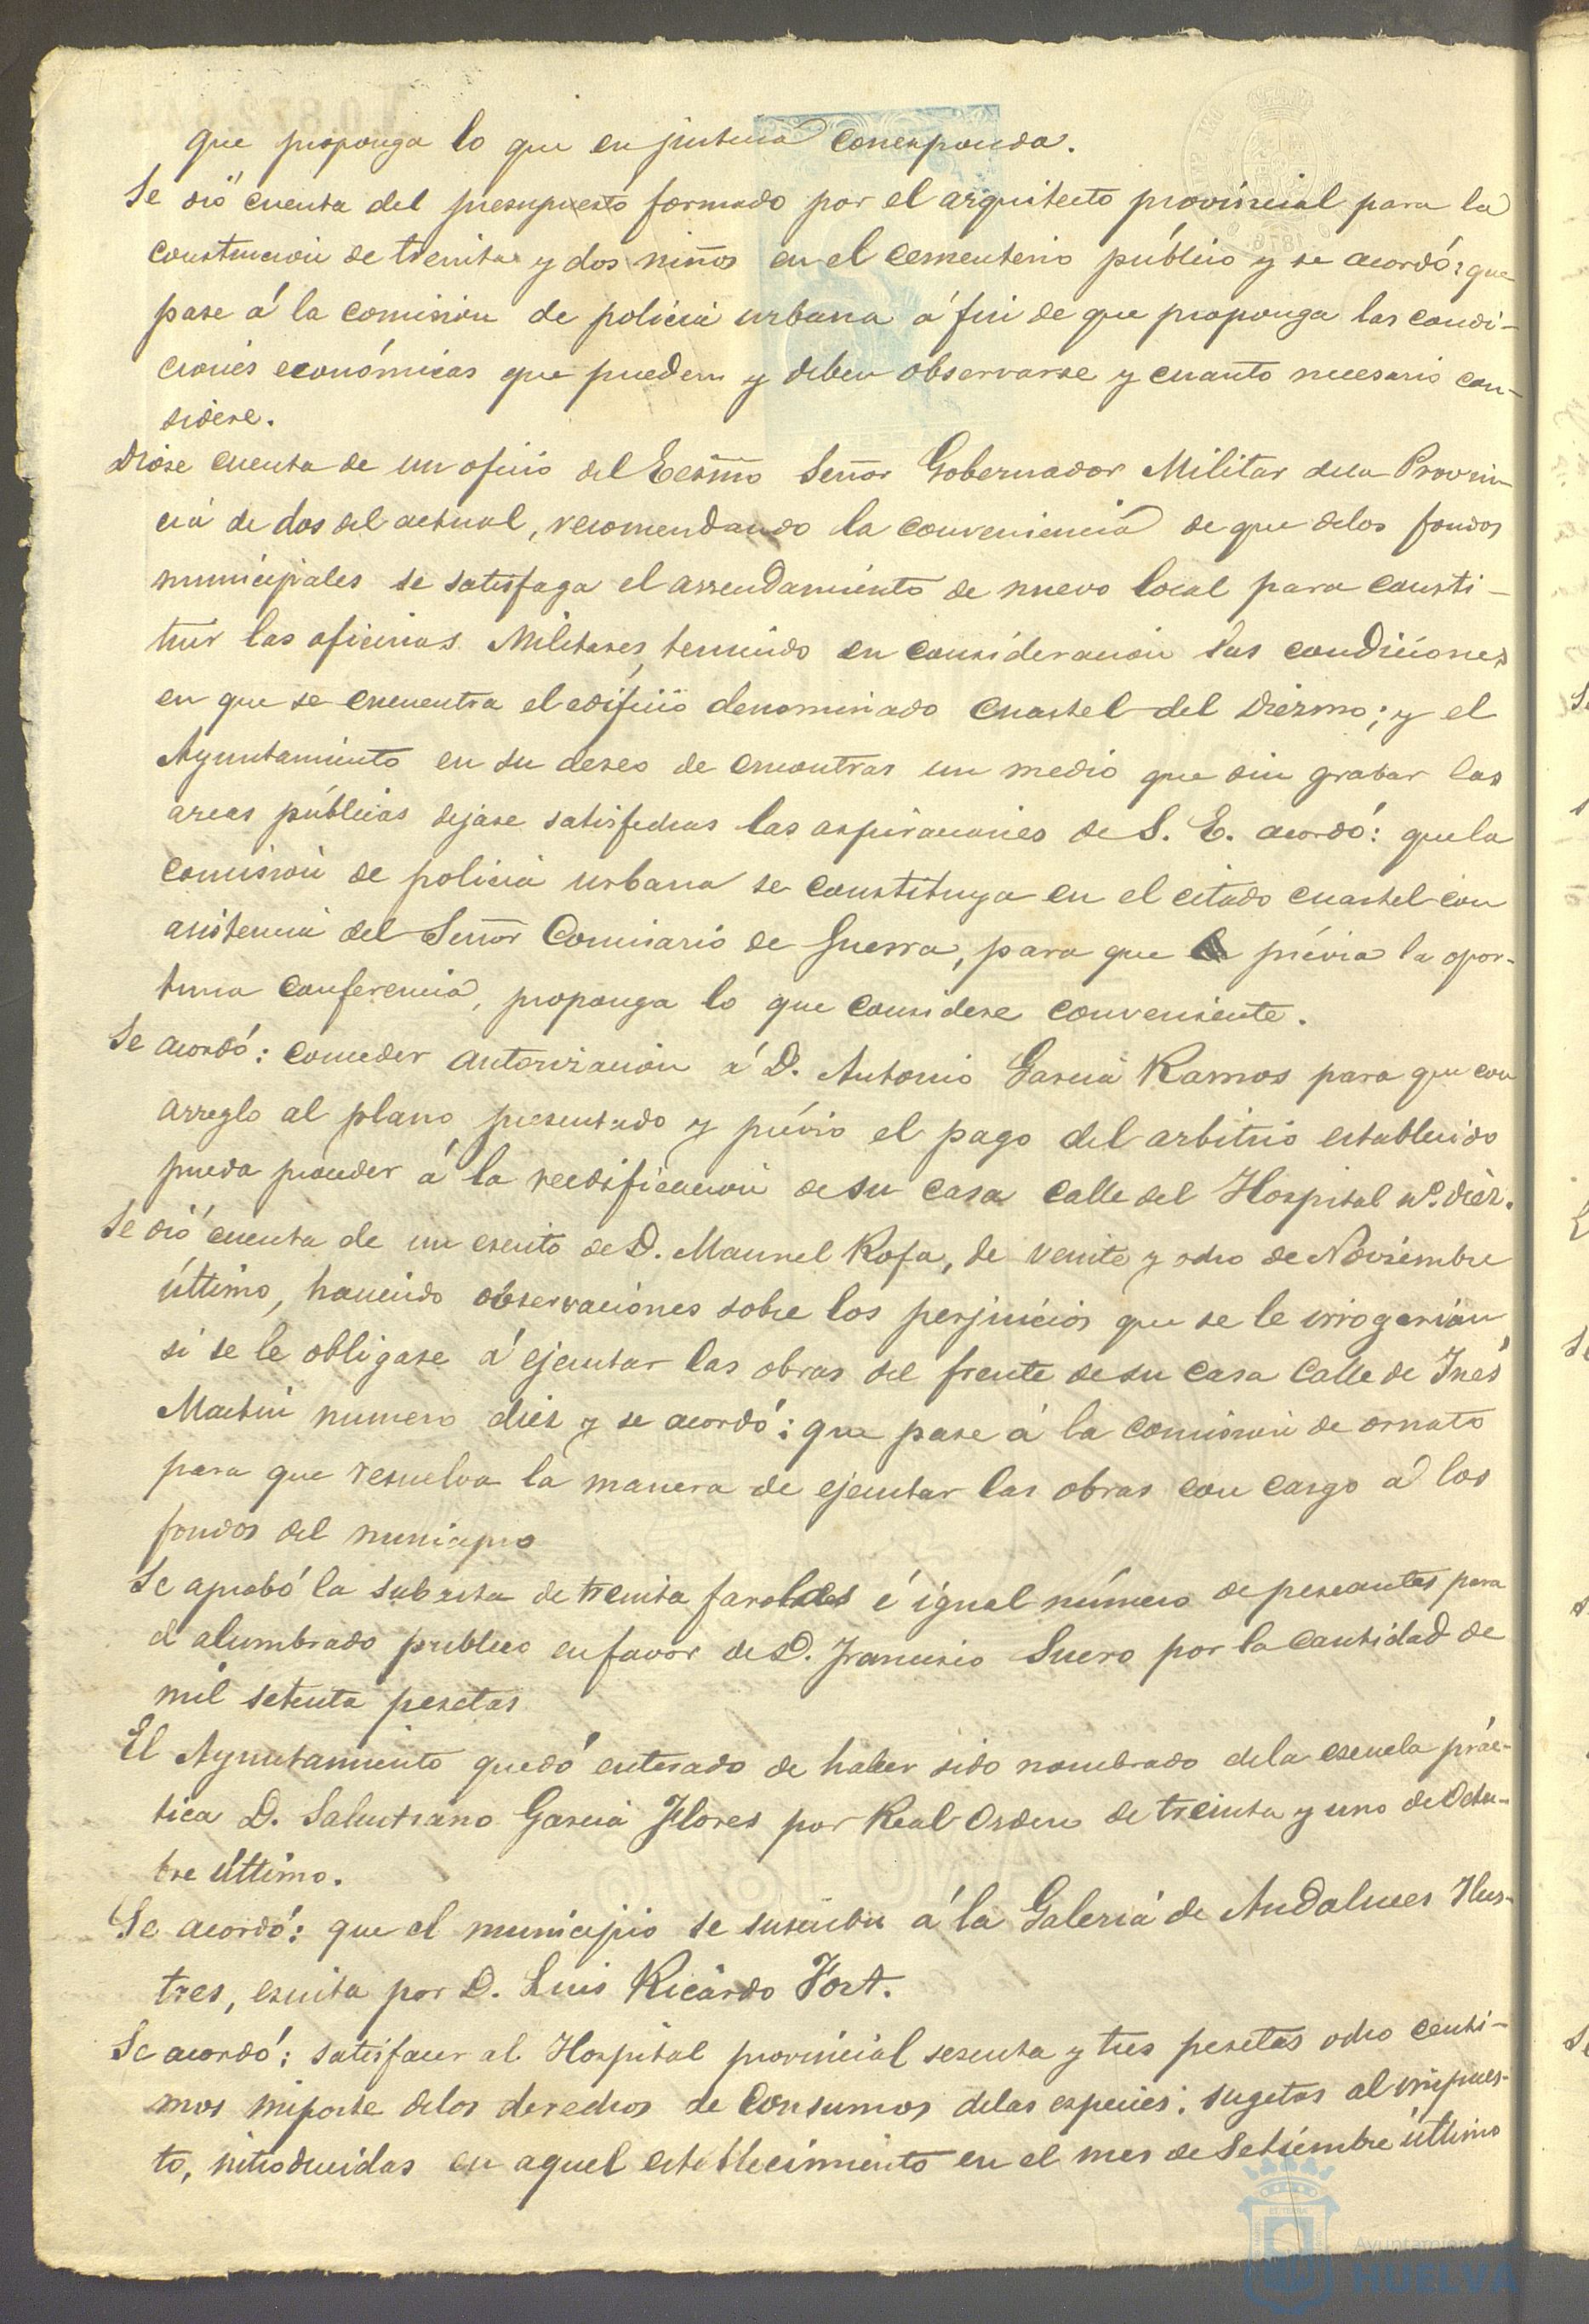 que proponga lo que en justicia corresponda.
Se dió cuenta del presupuesto formado por el arquitecto provincial para la
construccion de treinta y dos niños en el cementerio público y se acordó: que
pase á la comision de policia urbana á fin de que proponga las condi-
ciones económicas que pueden y deben observarse y cuanto necesario con-
sidere.
Diose cuenta de un oficio del Ecsmo Señor Gobernador Militar dela Provin-
cia de dos del actual, recomendando la conveniencia de que delos fondos
municipales se satisfaga el arrendamiento de nuevo local para consti-
tuir las oficinas Militares, teniendo en consideracion las condiciones
en que se encuentra el edificio denominado cuartel del Diezmo; y el
Ayuntamiento en su deseo de encontrar un medio que sin grabar las
arcas públicas dejase satisfechas las aspiraciones de S. E. acordó: que la
comision de policia urbana se constituya en el citado cuartel con
asistencia del Señor Comisario de Guerra, para que prévia la opor-
tuna conferencia, proponga lo que considere conveniente.
Se acordó: conceder autorizacion á D. Antonio Garcia Ramos para que con
arreglo al plano presentado y prévio el pago del arbitrio establecido
pueda proceder á la reedificacion de su casa calle del Hospital nº. diez.
Se dió cuenta de un escrito de D. Manuel Rofa, de veinte y ocho de Noviembre
último, haciendo observaciones sobre los perjuicios que se le irrogarian
si se le obligase á ejecutar las obras del frente de su casa Calle de Inés
Martin numero diez y se acordó: que pase á la comision de ornato
para que resuelva la manera de ejecutar las obras con cargo á los
fondos del municipio
Se aprobó la subasta de treinta faroles é igual número de pescantes para
el alumbrado publico en favor de D. Francisco Suero por la cantidad de
mil setenta pesetas
El Ayuntamiento quedó enterado de haber sido nombrado dela escuela prác-
tica D. Salustiano Garcia Flores por Real Orden de treinta y uno de Octu-
bre último.
Se acordó: que el municipio se suscriba á la Galeria de Andaluces Ilus-
tres, escrita por D. Luis Ricardo Fort.
Se acordó: satisfacer al Hospital provincial sesenta y tres pesetas ocho centi-
mos importe delos derechos de Consumos delas especies, sugetas al impues-
to, introducidas en aquel establecimiento en el mes de Setiembre último
Ayuntamiento
HUELVA